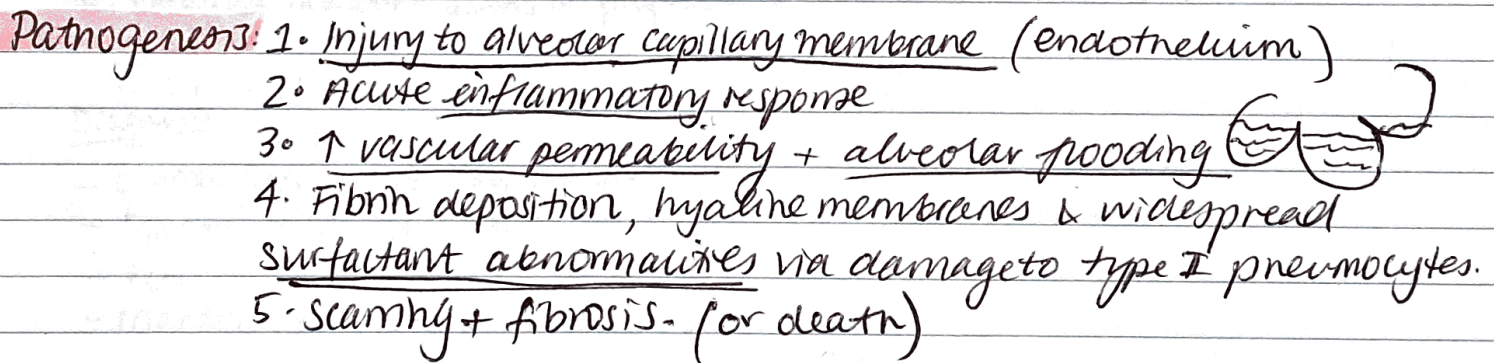 Pathogenesis: 1. Injury to alveolar capillary membrane (endothelium)
2. Acute inflammatory response
3. ↑ vascular permeability + alveolar flooding
4. Fibrin deposition, hyaline membranes & widespread
surfactant abnormalities via damage to type II pneumocytes.
5. scarring + fibrosis. (or death)